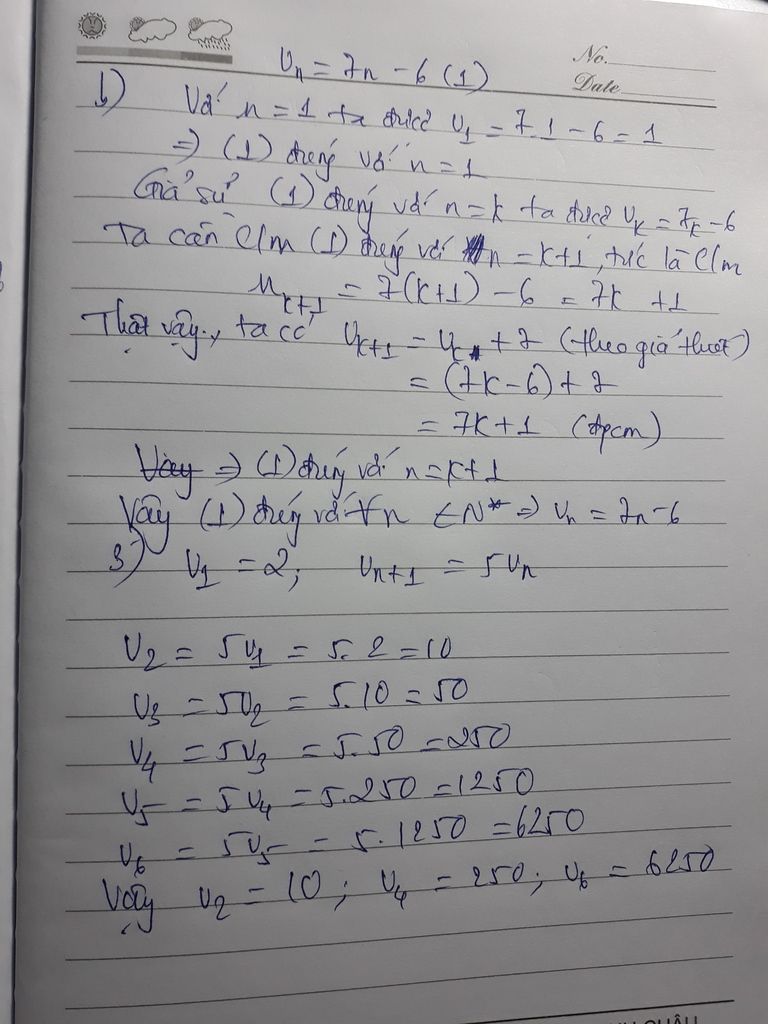 No.
Date
Uₙ = 7n - 6 (1)
b) Với n = 1 ta được U₁ = 7.1 - 6 = 1
⇒ (1) đúng với n = 1
Giả sử (1) đúng với n = k ta được Uₖ = 7k - 6
Ta cần C/m (1) đúng với n = k+1, tức là C/m
uₖ₊₁ = 7(k+1) - 6 = 7k + 1
Thật vậy, ta có Uₖ₊₁ = Uₖ + 7 (theo giả thiết)
= (7k - 6) + 7
= 7k + 1 (đpcm)
Vậy ⇒ (1) đúng với n = k+1
Vậy (1) đúng với ∀n ∈ N* ⇒ Uₙ = 7n - 6
3) U₁ = 2; Uₙ₊₁ = 5Uₙ
U₂ = 5U₁ = 5.2 = 10
U₃ = 5U₂ = 5.10 = 50
U₄ = 5U₃ = 5.50 = 250
U₅ = 5U₄ = 5.250 = 1250
U₆ = 5U₅ = 5.1250 = 6250
Vậy U₂ = 10; U₄ = 250; U₆ = 6250